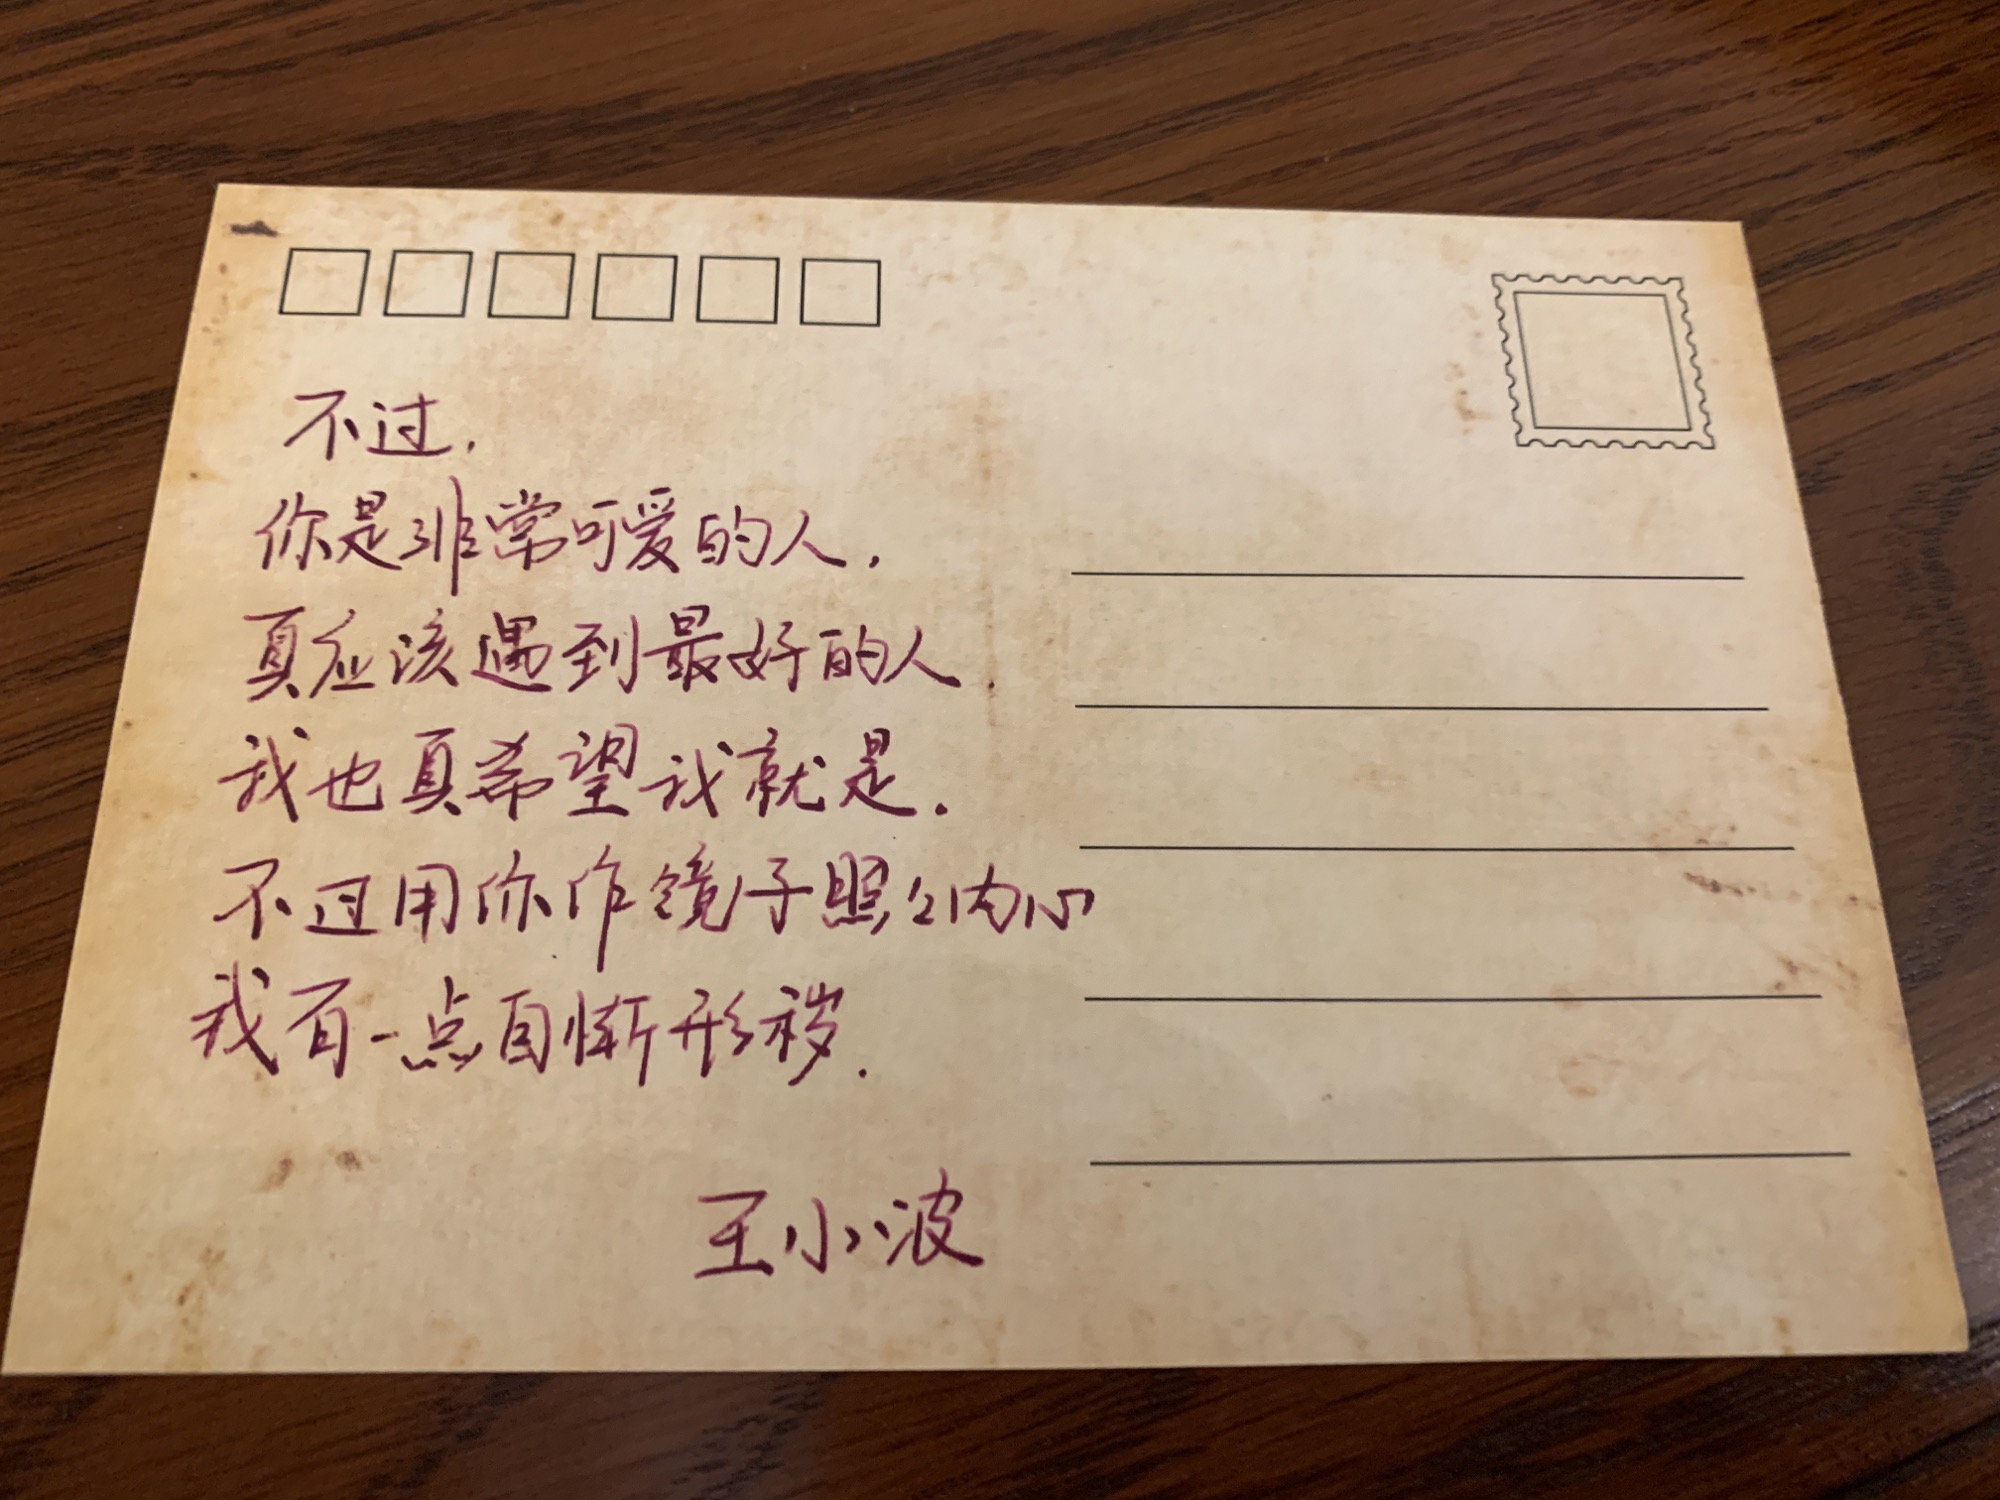 不过,
你是非常可爱的人,
真应该遇到最好的人.
我也真希望我就是.
不过用你作镜子照照内心
我有一点自惭形秽.
王小波